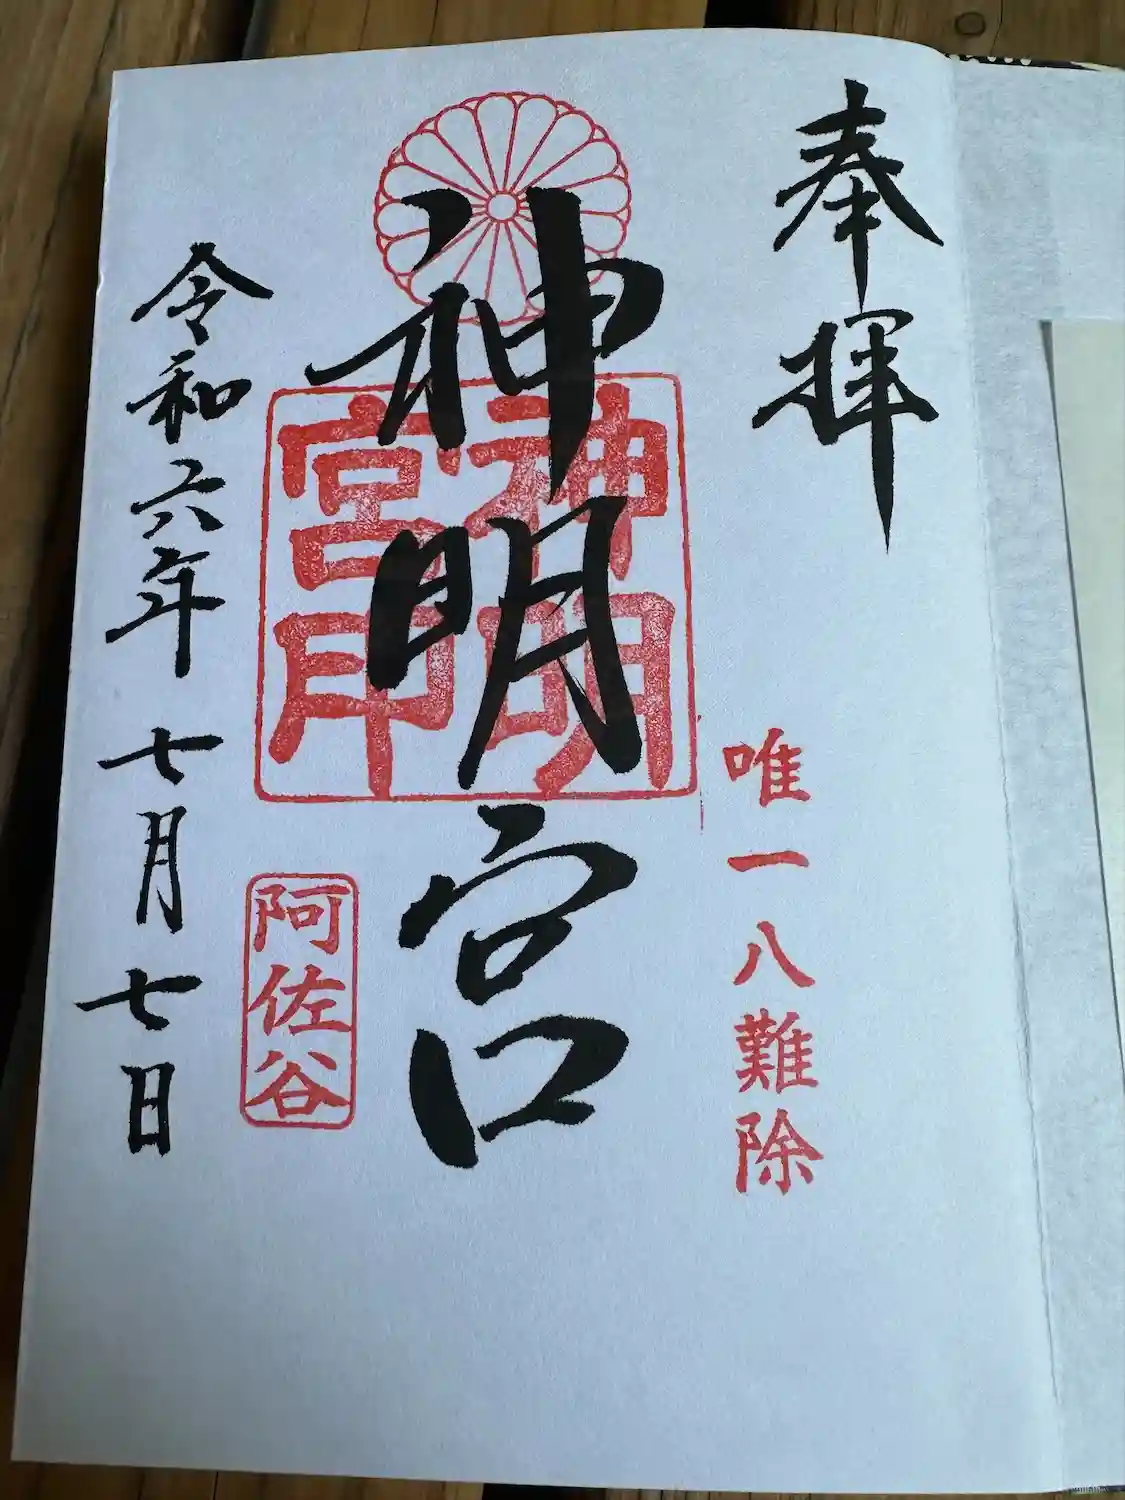 奉拝
唯一八難除
神明宮
神明
宮印
阿佐谷
令和六年七月七日